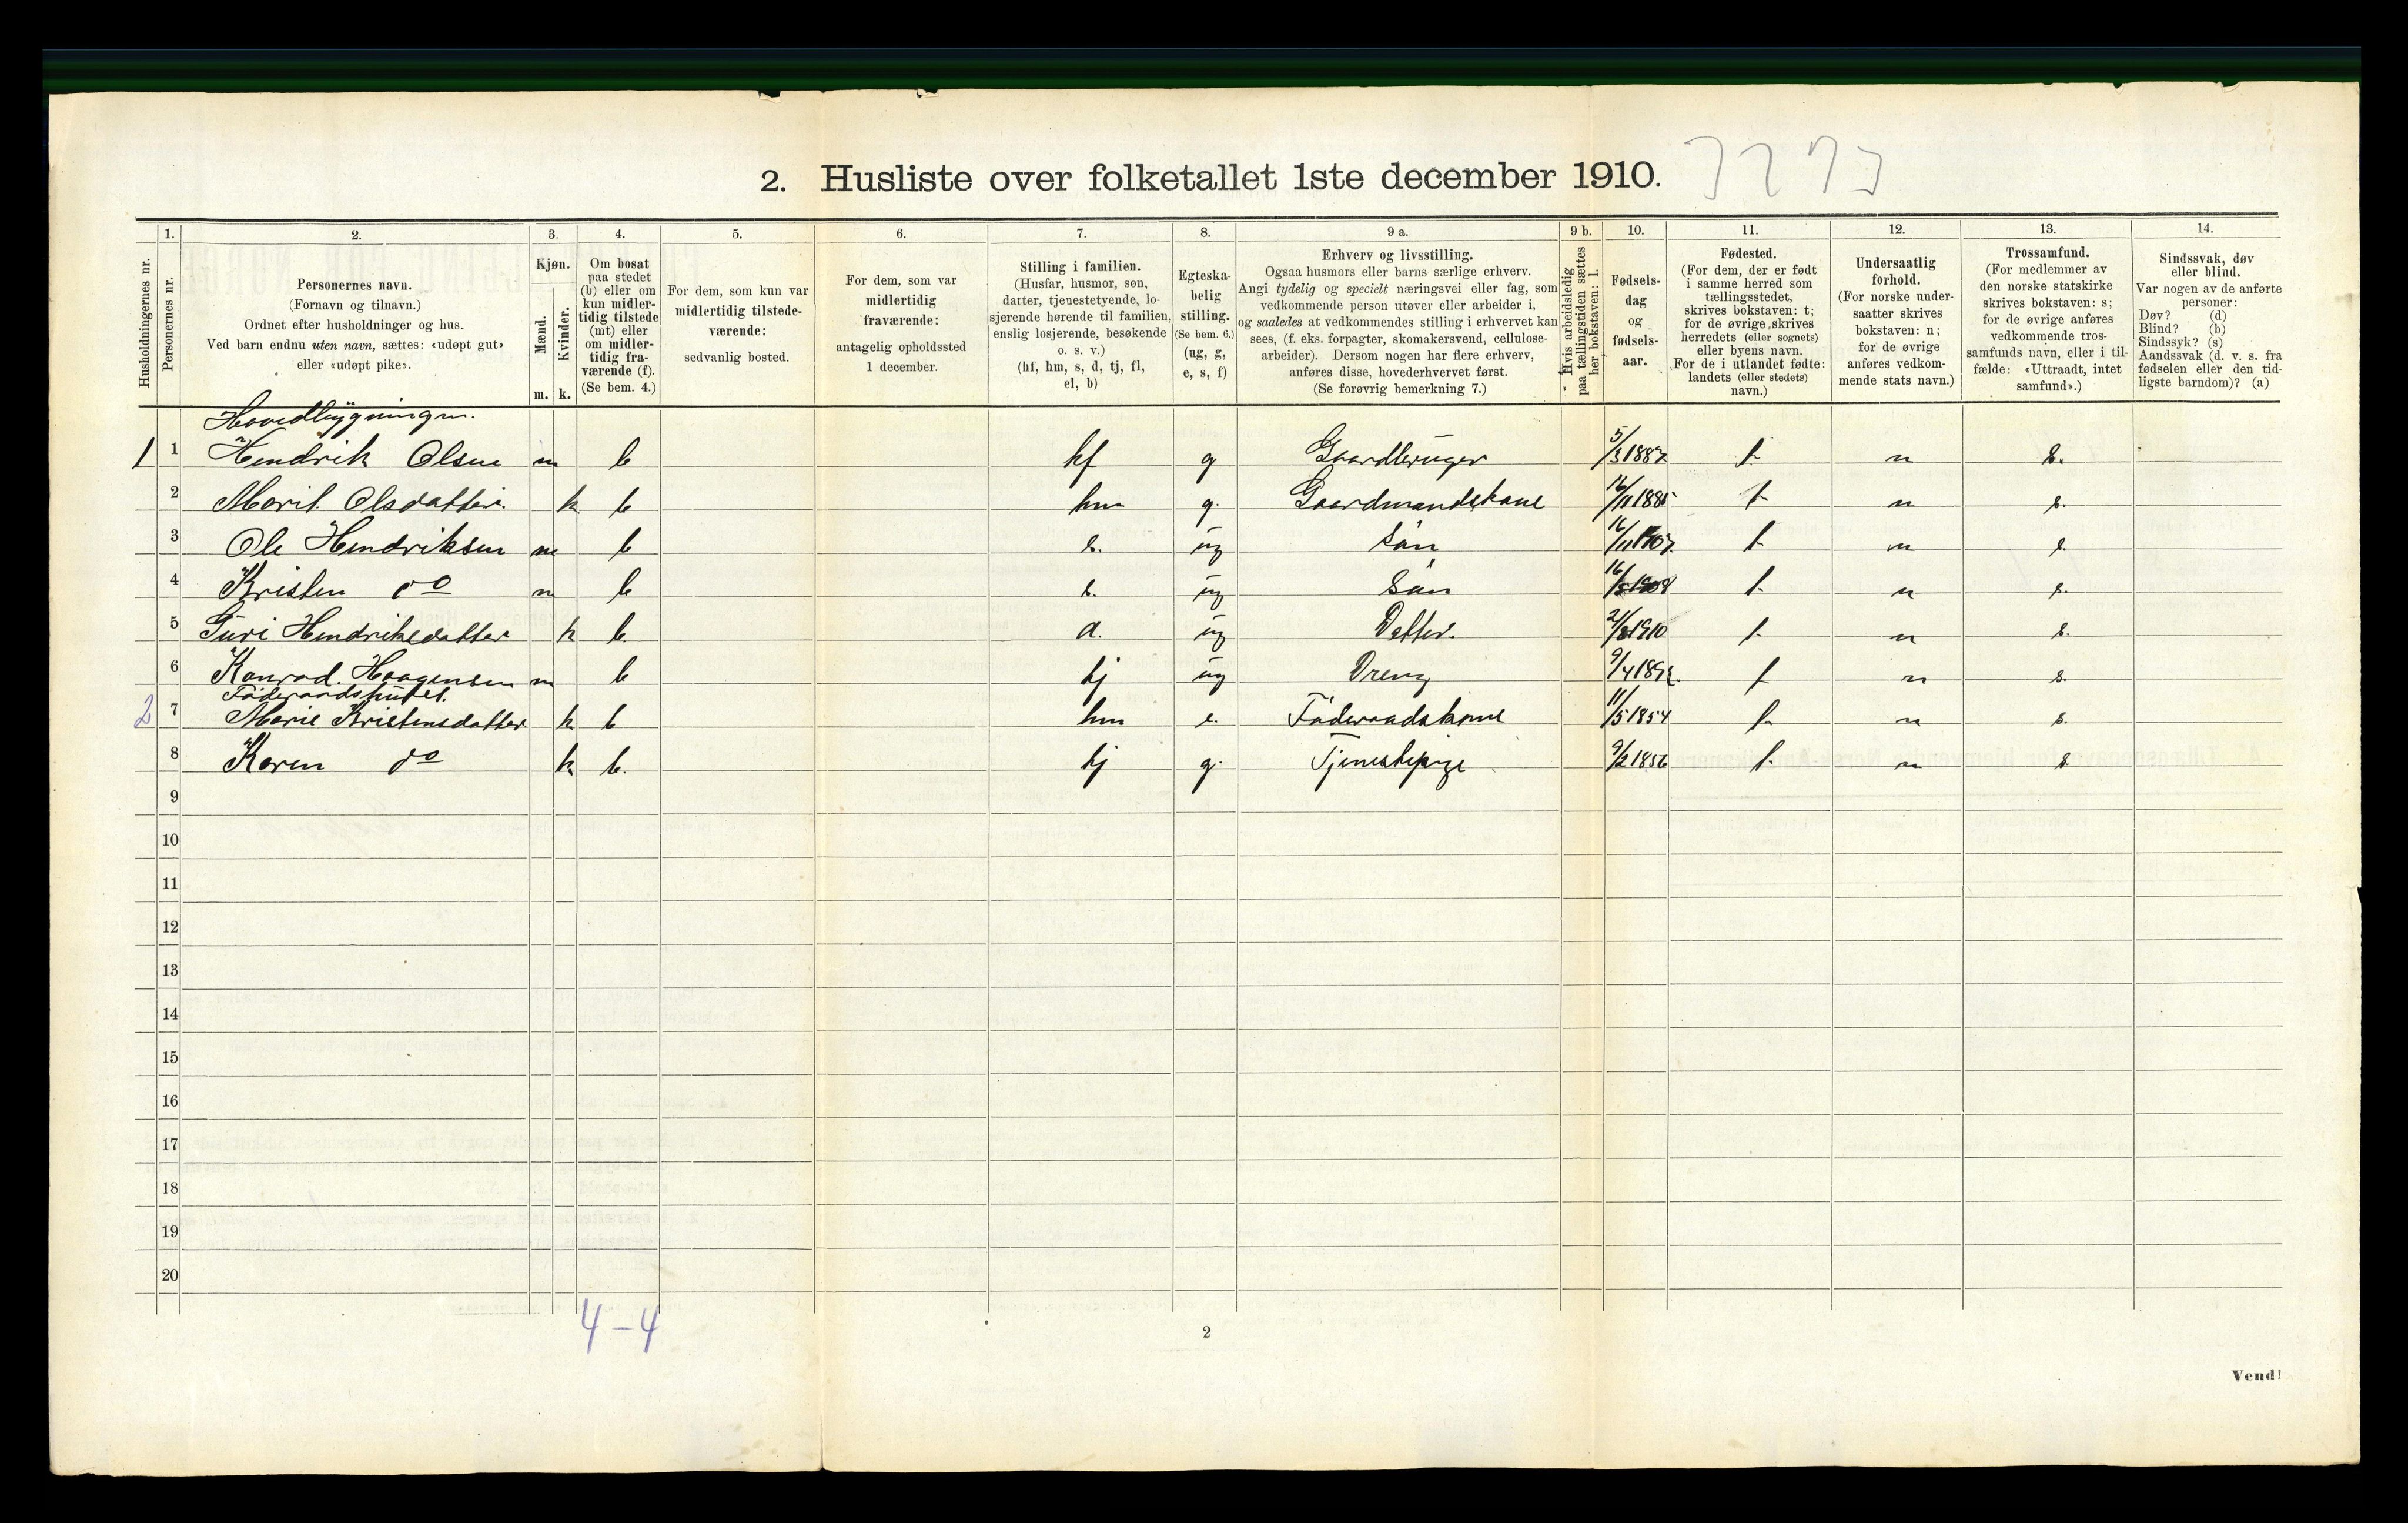 2. Husliste over folketallet 1ste december 1910.
Husholdningernes nr.
1. Personernes nr.
2. Personernes navn.
(Fornavn og tilnavn.)
Ordnet efter husholdninger og hus.
Ved barn endnu uten navn, sættes: «udøpt gut»
eller «udøpt pike».
3. Kjøn.
Mænd. Kvinder.
m. k.
4. Om bosat
paa stedet
(b) eller om
kun midler-
tidig tilstede
(mt) eller
om midler-
tidig fra-
værende (f).
(Se bem. 4.)
5. For dem, som kun var
midlertidig tilstede-
værende:
sedvanlig bosted.
6. For dem, som var
midlertidig
fraværende:
antagelig opholdssted
1 december.
7. Stilling i familien.
(Husfar, husmor, søn,
datter, tjenestetyende, lo-
sjerende hørende til familien,
enslig losjerende, besøkende
o. s. v.)
(hf, hm, s, d, tj, fl,
el, b)
8. Egteska-
belig
stilling.
(Se bem. 6.)
(ug, g,
e, s, f)
9 a. Erhverv og livsstilling.
Ogsaa husmors eller barns særlige erhverv.
Angi tydelig og specielt næringsvei eller fag, som
vedkommende person utøver eller arbeider i,
og saaledes at vedkommendes stilling i erhvervet kan
sees, (f. eks. forpagter, skomakersvend, cellulose-
arbeider). Dersom nogen har flere erhverv,
anføres disse, hovederhvervet først.
(Se forøvrig bemerkning 7.)
9 b. Hvis arbeidsledig
paa tællingstiden sættes
her bokstaven: l.
10. Fødsels-
dag
og
fødsels-
aar.
11. Fødested.
(For dem, der er født
i samme herred som
tællingsstedet,
skrives bokstaven: t;
for de øvrige skrives
herredets (eller sognets)
eller byens navn.
For de i utlandet fødte:
landets (eller stedets)
navn.)
12. Undersaatlig
forhold.
(For norske under-
saatter skrives
bokstaven: n;
for de øvrige
anføres vedkom-
mende stats navn.)
13. Trossamfund.
(For medlemmer av
den norske statskirke
skrives bokstaven: s;
for de øvrige anføres
vedkommende tros-
samfunds navn, eller i til-
fælde: «Uttraadt, intet
samfund».)
14. Sindssvak, døv
eller blind.
Var nogen av de anførte
personer:
Døv? (d)
Blind? (b)
Sindssyk? (s)
Aandssvak (d. v. s. fra
fødselen eller den tid-
ligste barndom)? (a)
Hovedbygningen.
1 1 Hendrik Olsen m b hf g Gaardbruger 5/3 1887 t n s.
2 Marit Olsdatter k b hm g. Gaardmandskone 16/11 1885 t n s.
3 Ole Hendriksen m b s. ug Sön 16/11 1907 t n s.
4 Kristen do m b s. ug Sön t n s.
5 Guri Hendriksdatter k b. d. ug Datter. 1910 t n s.
6 Konrad Haagensen m b tj ug Dreng 9/4 t n s.
Föderaadshuset.
2 7 Marie Kristensdatter k b hm e. Föderaadskone 11/5 1854 t n s.
8 Karen do k b. tj g. Tjenestepige 9/2 1856 t n s.
9
10
11
12
13
14
15
16
17
18
19
20
4-4
2
Vend!